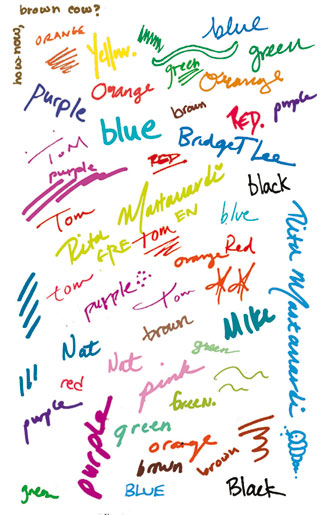 how-now,
brown cow?
ORANGE
Yellow.
blue
green
green
Orange
Orange
purple
brown
RED.
purple
blue
BridgeT Lee
TOM
purple
RED.
black
Tom
Rita Mastanardi
EN
GRE
Tom
blue
Rita Mastanardi
orange
Red
tom
purple
Tom
brown
MIKe
Nat
Nat
green
red
pink
purple
Green.
purple
green
orange
brown
brown
green
BLUE
BLack